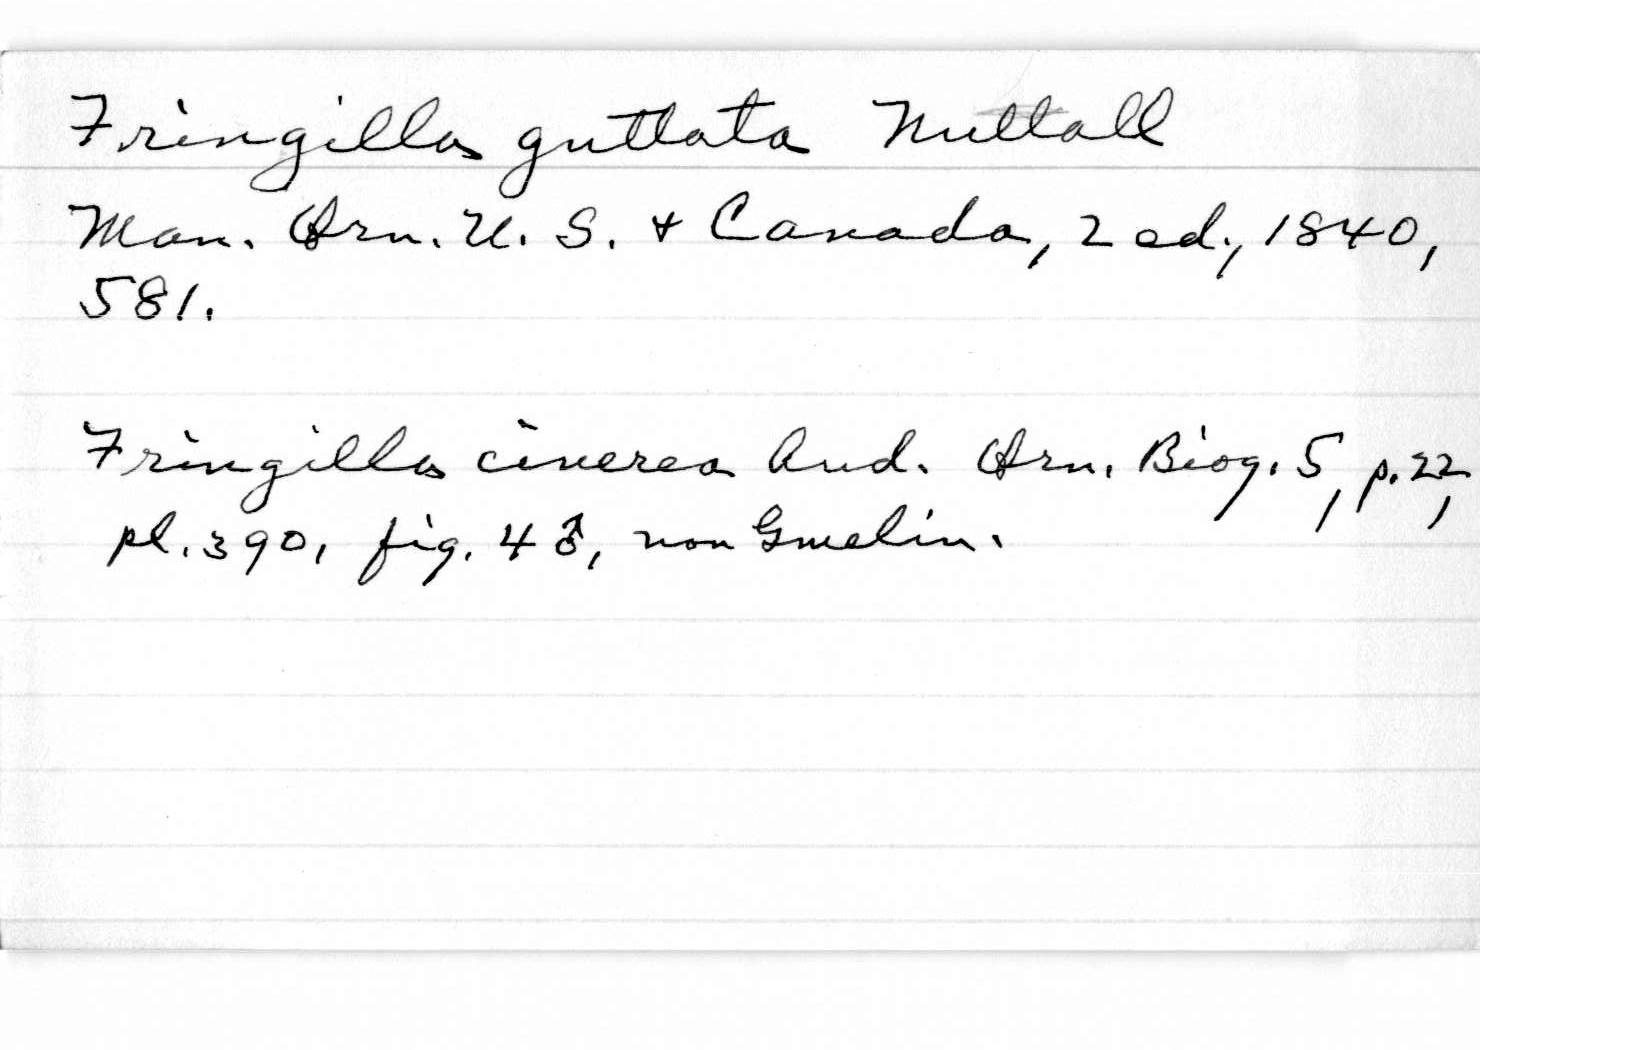 Fringilla guttata Nuttall
Man. Orn. U. S. & Canada, 2 ed., 1840,
581.
Fringilla cinerea Aud. Orn. Biog. 5, p. 22,
pl. 390, fig. 4 ♂, non Gmelin.